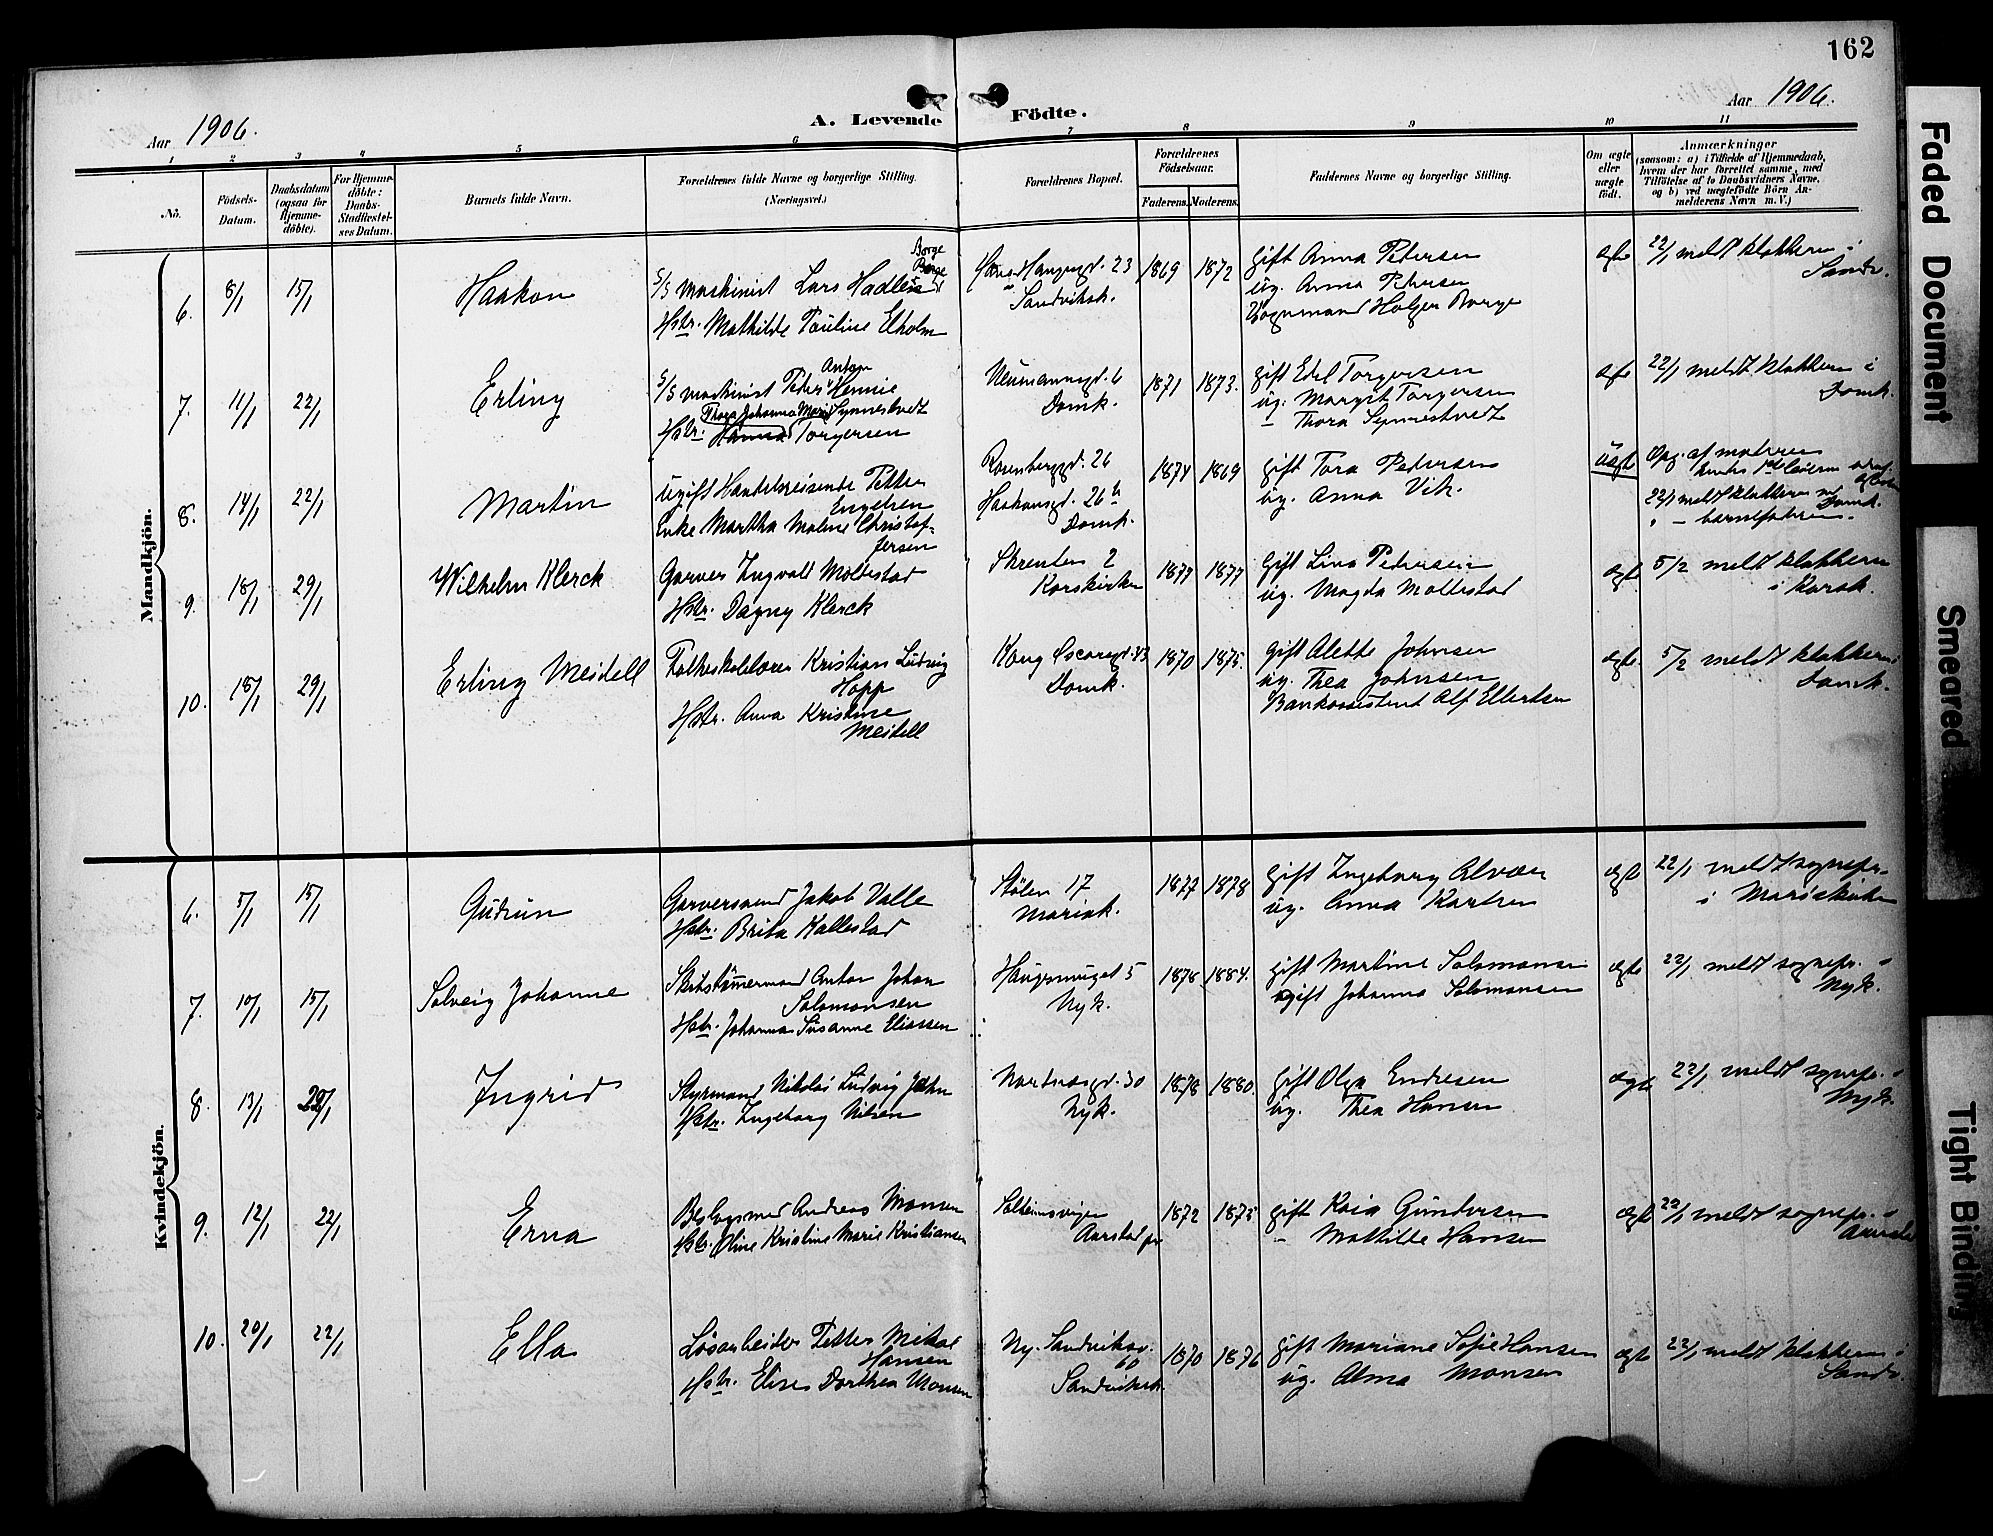 162
Aar 1906.
A. Levende Födte.
Aar 1906.
1 2 3 4 5 6 7 8 9 10 11
No.
Födsels-
Datum.
Daabsdatum
(ogsaa for
Hjemme-
döbte).
For Hjemme-
döbte:
Daabs-
Stadfæstel-
ses Datum.
Barnets fulde Navn.
Forældrenes fulde Navne og borgerlige Stilling.
(Næringsvei.)
Forældrenes Bopæl.
Forældrenes
Födselsaar.
Faderens. Moderens.
Faddernes Navne og borgerlige Stilling.
Om ægte
eller
uægte
födt.
Anmærkninger
(saasom: a) i Tilfælde af Hjemmedaab,
hvem der har forrettet samme, med
Tilföielse af to Daabsvidners Navne,
og b) ved uægtefödte Börn An-
melderens Navn m. V.)
Mandkjön.
6. 8/1 15/1
Haakon
Borge
S/S maskinist Lars Hadlein
Hstr. Mathilde Pauline Elholm
Haugegd. 23
Sandviksk.
1869 1872
gift Anna Petersen
ug. Anna Petersen
Vognmand Holger Borge
ægte
22/1 meldt klokkeren i
Sandv.
7. 11/1 22/1
Erling
Anton
S/S maskinist Peder Hennie
Thora Johanna Marie Synnestvedt
Hstr. Hanna Torgersen
Neumannsgd. 6
Domk.
1871 1873.
gift Edel Torgersen
ug. Margit Torgersen
– Thora Synnestvedt
ægte
22/1 meldt klokkeren i
Domk.
8. 14/1 22/1
Martin
Ugift Handelsreisende Petter
Engelsen
Enke Martha Maline Christof-
fersen
Rosenberggd. 26
Haakonsgd. 26 b
Domk.
1874 1869
gift Tora Petersen
ug. Anna Vik.
uægte
Opg. af moderen
22/1 meldt klokkeren i
Domk.
" – barnefaderen.
9. 18/1 29/1
Wilhelm Klerck
Garver Ingvald Mollestad
Hstr. Dagny Klerck
Skrenten 2
Korskirken
1877 1877
gift Lina Petersen
ug. Magda Mollestad
ægte
5/2 meldt klokkeren
i Korsk.
10. 18/1 29/1
Erling Meidell
Folkeskolelærer Kristian Ludvig
Hopp
Hstr. Anna Kristine
Meidell
Kong Oscarsgd. 43
Domk.
1870 1875.
gift Alette Johnsen
ug. Thea Johnsen
Bankassistent Alf Ellertsen
ægte
5/2 meldt klokkeren i
Domk.
Kvindekjön.
6. 5/1 15/1
Gudrun
Garversvend Jakob Valle
Hstr. Brita Kallestad
Stølen 17
Mariak.
1877 1878
gift Ingeborg Alvær
ug. Anna Karlsen
ægte
22/1 meldt sognepr.
i Mariakirken
7. 10/1 15/1
Solveig Johanne
Skibstømmermand Anton Johan
Salomonsen
Hstr. Johanna Susanne Eliassen
Haugesmuget 5
Nyk.
1878 1884.
gift Martine Salomonsen
ugift Johanna Salomonsen
ægte
22/1 meldt sognepr. i
Nyk.
8. 13/1 22/1
Ingrid
Styrmand Nikolai Ludvig Jahn
Hstr. Ingeborg Nilsen
Nordnæsgd. 30
Nyk.
1878 1880.
gift Olga Endresen
ug. Thea Hansen
ægte
22/1 meldt sognepr. i
Nyk.
9. 12/1 22/1
Erna
Bøslagsmed Andreas Monsen
Hstr. Oline Kristine Marie Kristiansen
Solheimsvigen
Aarstad pr
1872 1875
gift Kaia Gundersen
– Mathilde Hansen
ægte
22/1 meldt sognepr. i
Aarstad
10. 20/1 22/1
Ella
Løsarbeider Petter Mikal
Hansen
Hstr. Elise Dorthea Monsen
Ny. Sandviksv.
60
Sandviksk.
1870 1876
gift Mariane Sofie Hansen
ug. Alma Monsen
ægte
22/1 meldt klokkeren i
Sandv.
Faded Document
Smeared
Tight Binding